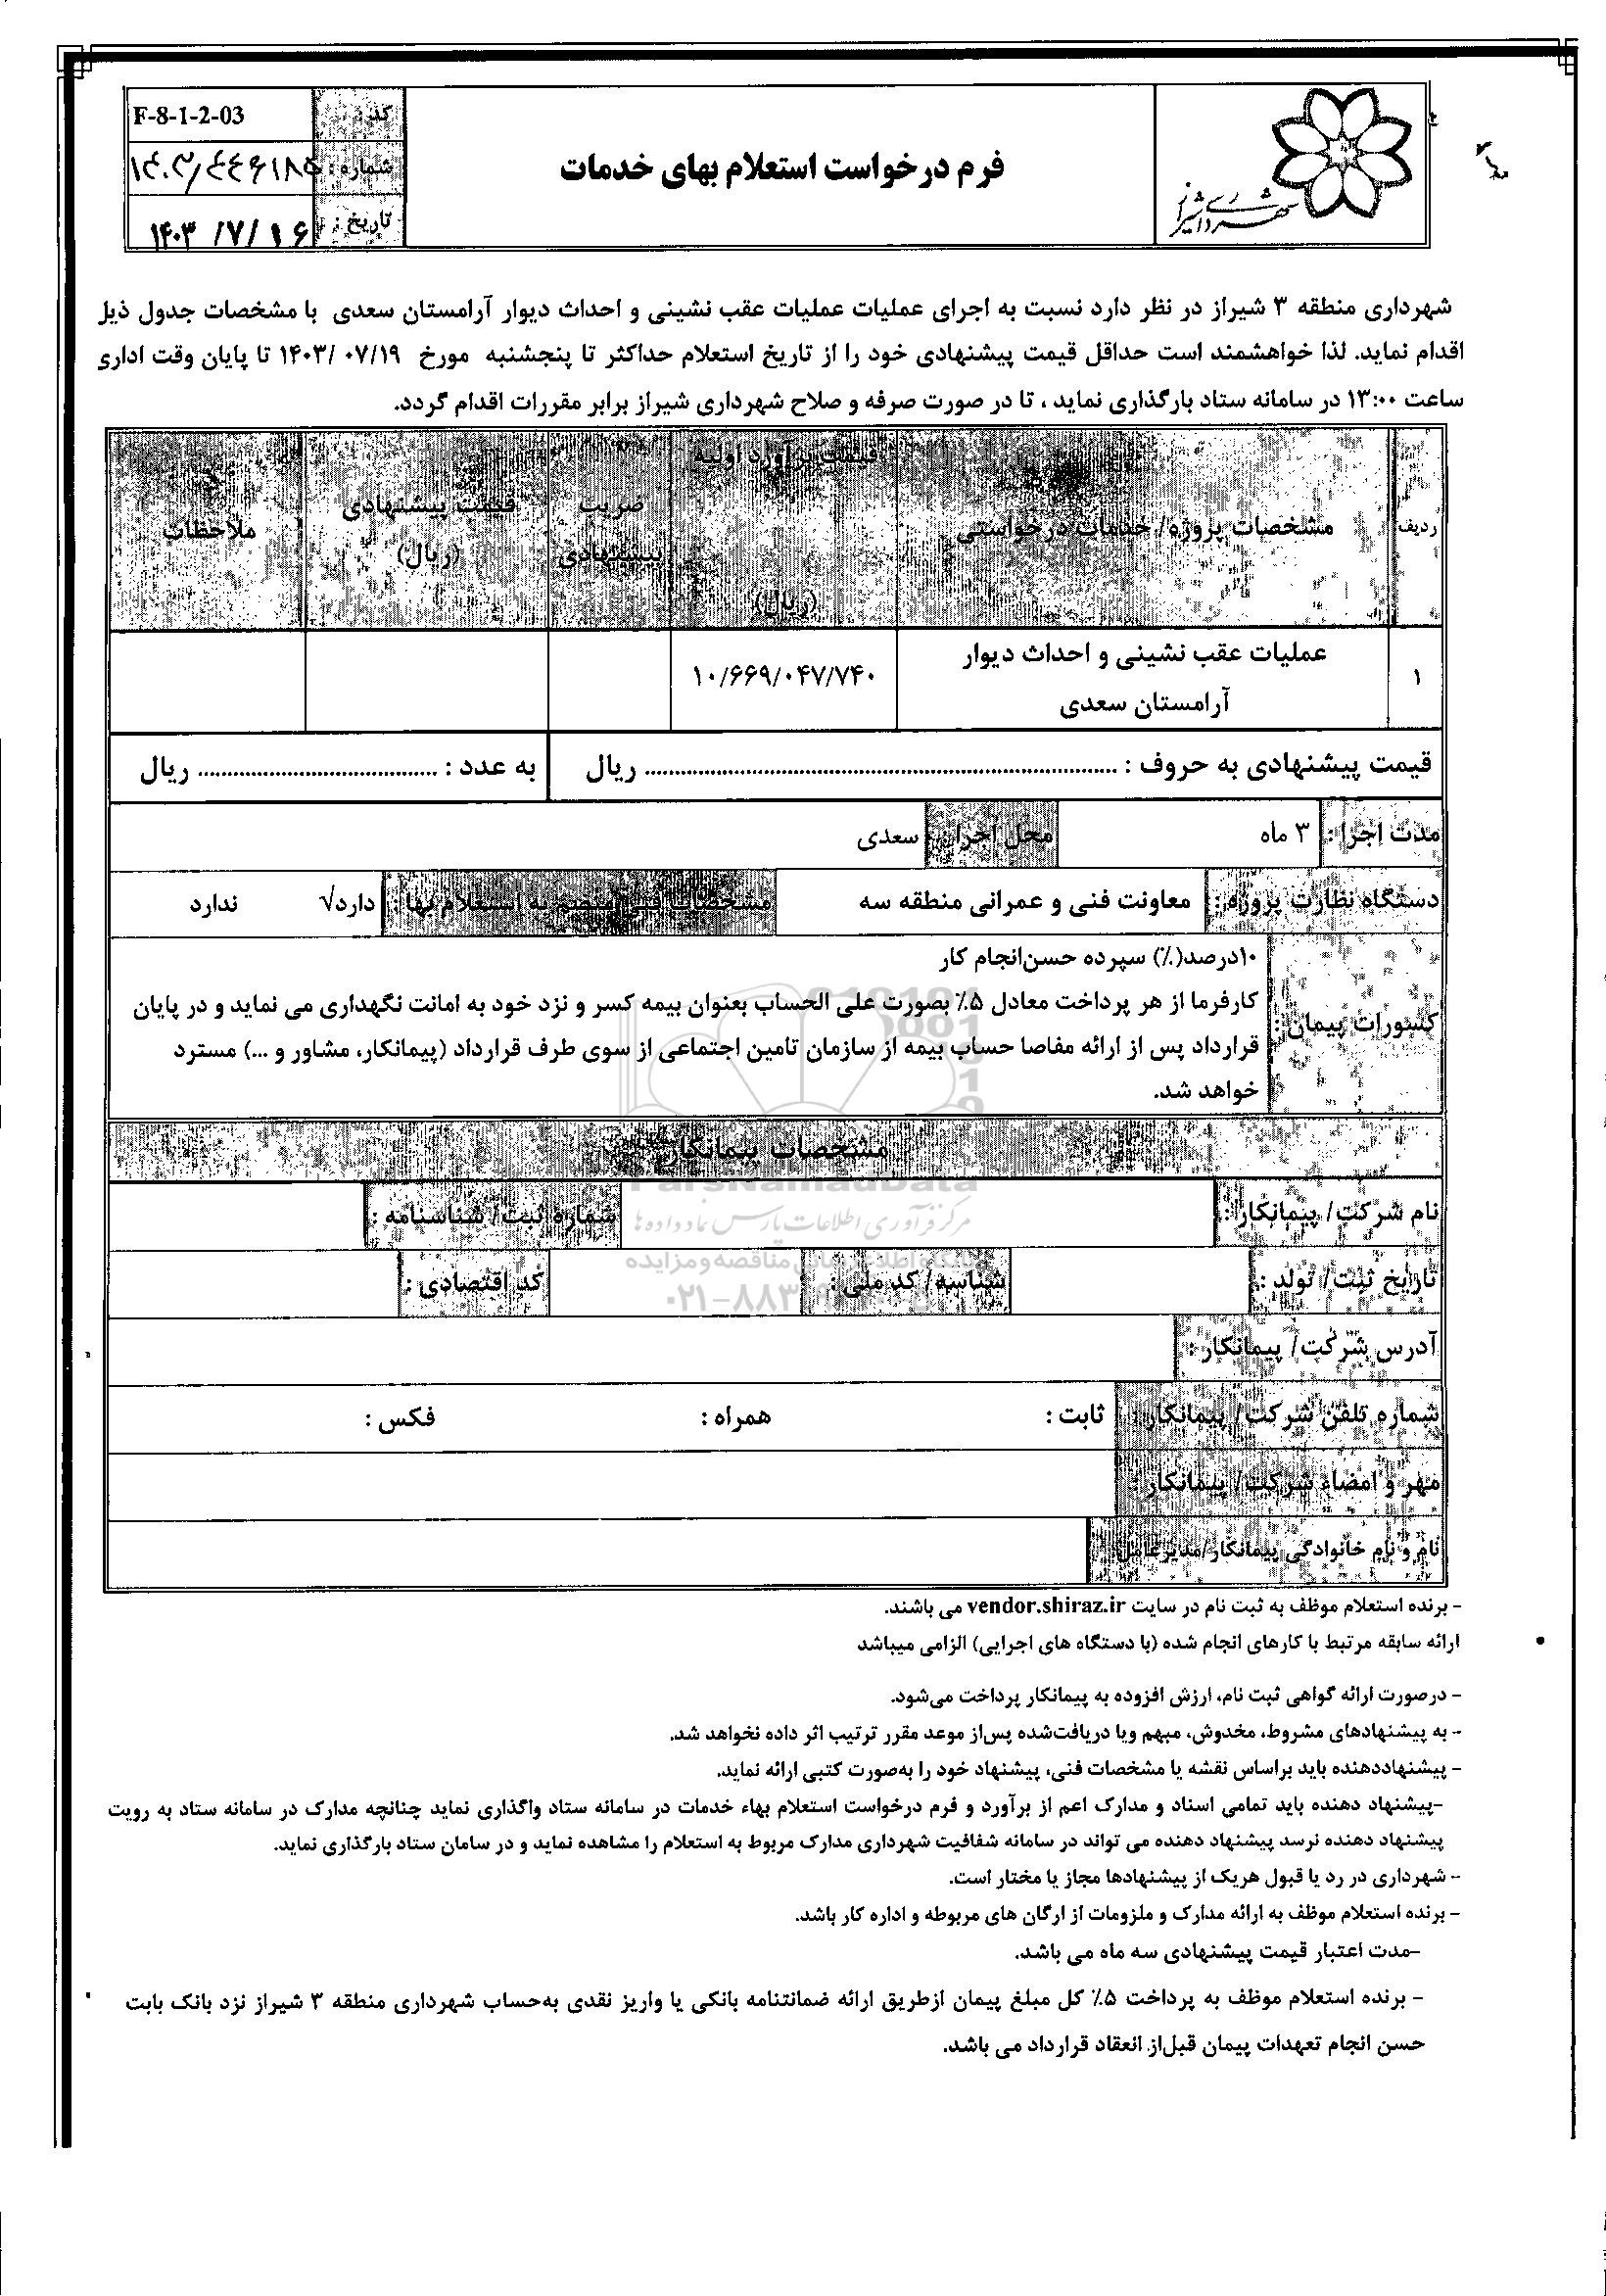 شهرداری شیراز
فرم درخواست استعلام بهای خدمات
کد : F-8-1-2-03
شماره :
تاریخ : ۱۴۰۳/۷/۱۶
شهرداری منطقه ۳ شیراز در نظر دارد نسبت به اجرای عملیات عملیات عقب نشینی و احداث دیوار آرامستان سعدی با مشخصات جدول ذیل
اقدام نماید. لذا خواهشمند است حداقل قیمت پیشنهادی خود را از تاریخ استعلام حداکثر تا پنجشنبه مورخ ۱۴۰۳/ ۰۷/۱۹ تا پایان وقت اداری
ساعت ۱۳:۰۰ در سامانه ستاد بارگذاری نماید ، تا در صورت صرفه و صلاح شهرداری شیراز برابر مقررات اقدام گردد.
ردیف
مشخصات پروژه/ خدمات درخواستی
قیمت برآورد اولیه
(ریال)
ضریب
پیشنهادی
قیمت پیشنهادی
(ریال)
ملاحظات
۱
عملیات عقب نشینی و احداث دیوار
آرامستان سعدی
۱۰/۶۶۹/۰۴۷/۷۴۰
قیمت پیشنهادی به حروف : ........................................ ریال
به عدد : ........................................ ریال
مدت اجرا : ۳ ماه
محل اجرا : سعدی
دستگاه نظارت پروژه : معاونت فنی و عمرانی منطقه سه
مشخصات فنی منضم به استعلام بها : دارد√ ندارد
کسورات پیمان :
۱۰درصد(٪) سپرده حسن‌انجام کار
کارفرما از هر پرداخت معادل ۵٪ بصورت علی الحساب بعنوان بیمه کسر و نزد خود به امانت نگهداری می نماید و در پایان
قرارداد پس از ارائه مفاصا حساب بیمه از سازمان تامین اجتماعی از سوی طرف قرارداد (پیمانکار، مشاور و ...) مسترد
خواهد شد.
مشخصات پیمانکار
ParsNamadData
نام شرکت/ پیمانکار :
شماره ثبت/ شناسنامه :
مرکز فرآوری اطلاعات پارس نماد داده ها
تاریخ ثبت/ تولد :
شناسه/ کد ملی :
کد اقتصادی :
آدرس شرکت/ پیمانکار :
شماره تلفن شرکت/ پیمانکار : ثابت : همراه : فکس :
مهر و امضاء شرکت/ پیمانکار :
نام و نام خانوادگی پیمانکار/مدیرعامل
- برنده استعلام موظف به ثبت نام در سایت vendor.shiraz.ir می باشند.
• ارائه سابقه مرتبط با کارهای انجام شده (با دستگاه های اجرایی) الزامی میباشد
- درصورت ارائه گواهی ثبت نام، ارزش افزوده به پیمانکار پرداخت می‌شود.
- به پیشنهادهای مشروط، مخدوش، مبهم ویا دریافت‌شده پس‌از موعد مقرر ترتیب اثر داده نخواهد شد.
- پیشنهاددهنده باید براساس نقشه یا مشخصات فنی، پیشنهاد خود را به‌صورت کتبی ارائه نماید.
-پیشنهاد دهنده باید تمامی اسناد و مدارک اعم از برآورد و فرم درخواست استعلام بهاء خدمات در سامانه ستاد واگذاری نماید چنانچه مدارک در سامانه ستاد به رویت
پیشنهاد دهنده نرسد پیشنهاد دهنده می تواند در سامانه شفافیت شهرداری مدارک مربوط به استعلام را مشاهده نماید و در سامان ستاد بارگذاری نماید.
- شهرداری در رد یا قبول هریک از پیشنهادها مجاز یا مختار است.
- برنده استعلام موظف به ارائه مدارک و ملزومات از ارگان های مربوطه و اداره کار باشد.
-مدت اعتبار قیمت پیشنهادی سه ماه می باشد.
- برنده استعلام موظف به پرداخت ۵٪ کل مبلغ پیمان ازطریق ارائه ضمانتنامه بانکی یا واریز نقدی به‌حساب شهرداری منطقه ۳ شیراز نزد بانک بابت
حسن انجام تعهدات پیمان قبل‌از انعقاد قرارداد می باشد.